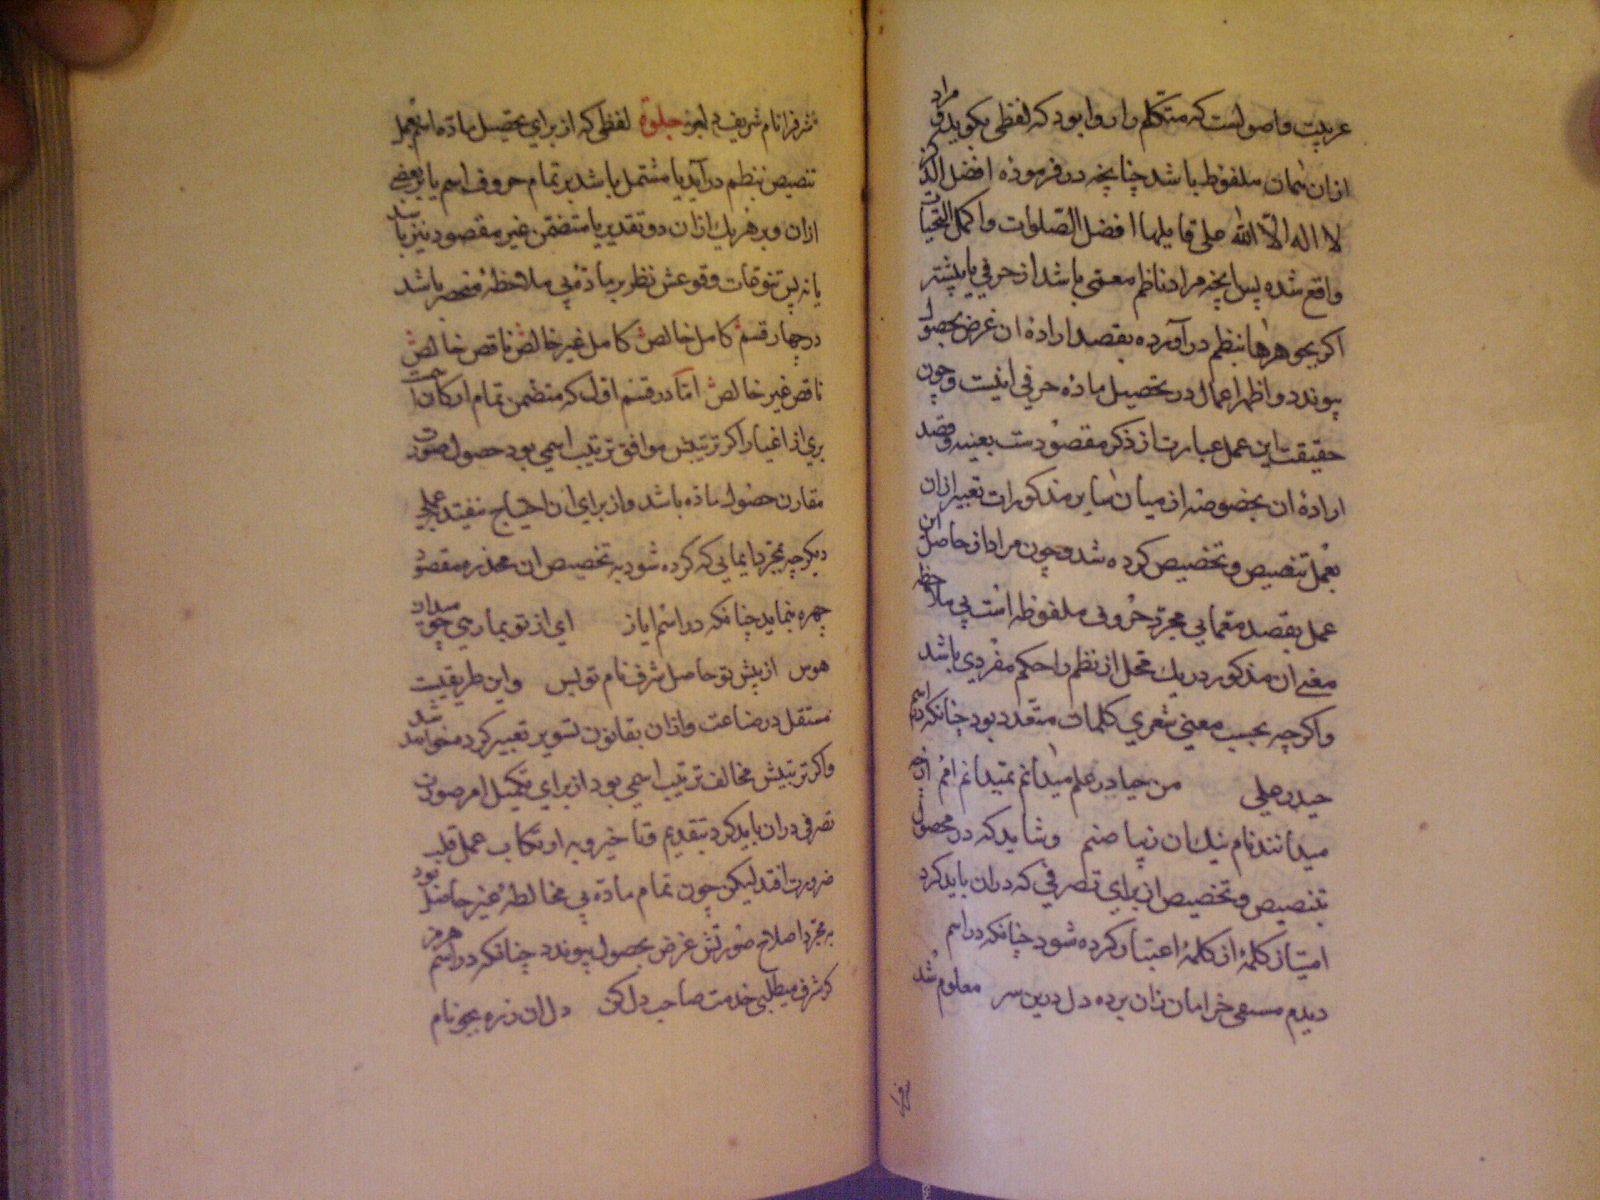 عربیت و اصولست که متکلم را روا بود که لفظی بگوید و مراد
ازان سمات ملفوظ باشد چنانچه در فرموده افضل الذکر
لا اله الا الله علی قایلها افضل الصلوات و اکمل التحیات
واقع شده پس آنچه مراد ناظم معمی باشد از حرفی یا بیشتر
اکر بجوهرها بنظم درآورده بقصد اراده ان غرض بحصول
پیوندد و اظهر اعمال در تحصیل ماده حرفی اینست و چون
حقیقت این عمل عبارت از ذکر مقصودست بعینه و قصد
اراده ان بخصوصه از میان سایر مذکورات تعبیر ازان
بعمل تنصیص و تخصیص کرده شد و چون مراد از حاصل این
عمل بقصد معمایی مجرد حروف ملفوظه است بی ملاحظه
معنی ان مذکور در یک محل از نظم را حکم مفردی باشد
و اکرچه بحسب معنی شعری کلمات متعدد بود چنانکه در اسم
حیدر علی من حیا در علم میدانم نمیدانم
میدانند نام نیک ان زیبا صنم و شاید که در محصول
تنصیص و تخصیص از برای تصرفی که دران باید کرد
امتیاز کلمهٔ از کلمهٔ اعتبار کرده شود چنانکه در اسم
دیدم مسعی خرامان زان برده دل درین سر معلوم شد
شرفرا نام شریف جلوه لفظی که از برای تحصیل ماده اسم بعمل
تنصیص بنظم درآید یا مشتمل باشد بر تمام حروف اسم یا بر بعضی
ازان و بر هر یک ازان دو تقدیر یا متضمن غیر مقصود نیز باشد
یا نه پس تنوعات وقوعش نظر بر ماده بی ملاحظهٔ منحصر باشد
در چهار قسم کامل خالص کامل غیر خالص ناقص خالص
ناقص غیر خالص اما در قسم اول که متضمن تمام ارکانست
بری از اغیار اکر ترتیبش موافق ترتیب اسمی بود حصول صورت
مقارن حصول ماده باشد و از برای ان احتیاج نیفتد بعملی
دیکر چه بمجرد ایمایی که کرده شود به تخصیص ان مقصود
چهره بنماید چنانکه در اسم ایاز ای از تو بما رسی
هوس از پیش تو حاصل شرف نام تو بس و این طریقیست
مستقل در ضاعت و ازان بقانون تسویر تعبیر کرده خواهد شد
و اکر ترتیبش مخالف ترتیب اسمی بود از برای تکمیل امر صورت
تصرفی دران باید کرد بتقدیم و تاخیر و به ارتکاب عمل قلب
ضرورت افتد لیکن چون تمام ماده بی مخالطهٔ غیر حاصل بود
به مجرد اصلاح صورتش غرض بحصول پیوندد چنانکه در اسم هرمز
کر شرف میطلبی خدمت صاحب دل کن دل ان زمره بجو نام